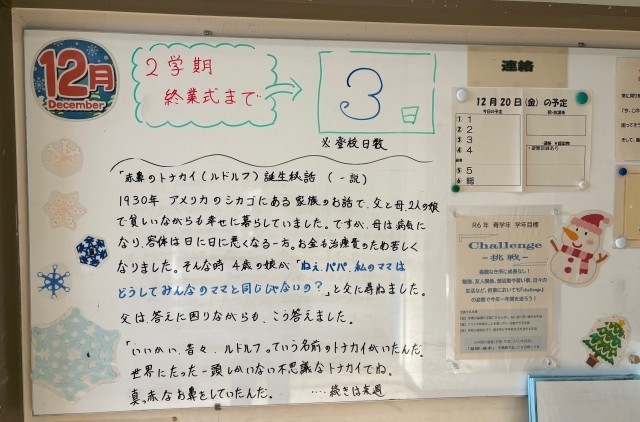 12月
December
2学期
終業式まで
3日
※登校日数
「赤鼻のトナカイ(ルドルフ)誕生秘話 (一説)
1930年 アメリカのシカゴにある家族のお話で、父と母、2人の娘
で貧しいながらも幸せに暮らしていました。ですが、母は病気に
なり、容体は日に日に悪くなる一方。お金も治療費のため苦しく
なりました。そんな時 4歳の娘が「ねぇ、パパ、私のママは
どうしてみんなのママと同じじゃないの?」と父に尋ねました。
父は、答えに困りながらも、こう答えました。
「いいかい、昔々、ルドルフっていう名前のトナカイがいたんだ。
世界にたった一頭しかいない不思議なトナカイでね。
真っ赤なお鼻をしていたんだ。 ‥‥続きは来週
連絡
12月20日(金)の予定
今日の予定
① 1
② 2
③ 3
④ 4
⑤ 5
⑥ 総
R6年 青学年 学年目標
Challenge
-挑戦-